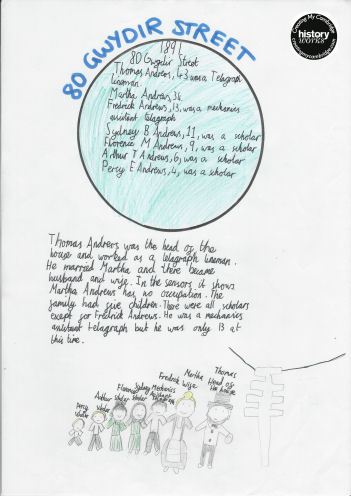 80 GWYDIR STREET
Creating My Cambridge
history
works
creatingmycambridge.com
1891
80 Gwydir Street
Thomas Andrews, 43 was a Telegraph
lineman
Martha Andrews, 36
Fredrick Andrews, 13, was a mechanics
assistant telagraph
Sydney B Andrews, 11, was a scholar
Florence M Andrews, 9, was a scholar
Arthur T Andrews, 6, was a scholar
Percy E Andrews, 4, was a scholar
Thomas Andrews was the head of the
house and worked as a telagraph lineman.
He married Martha and there became
husband and wife. In the sensors it shows
Martha Andrews has no occupation. The
family had five children. There were all scholars
except for Fredrick Andrews. He was a mechanics
assistant telagraph but he was only 13 at
this time.
Percy
scholar
Arthur
scholar
Florence
scholar
Sydney
scholar
Fredrick
Mechanics
Assistant
Martha
Wife
Thomas
Head of
the house